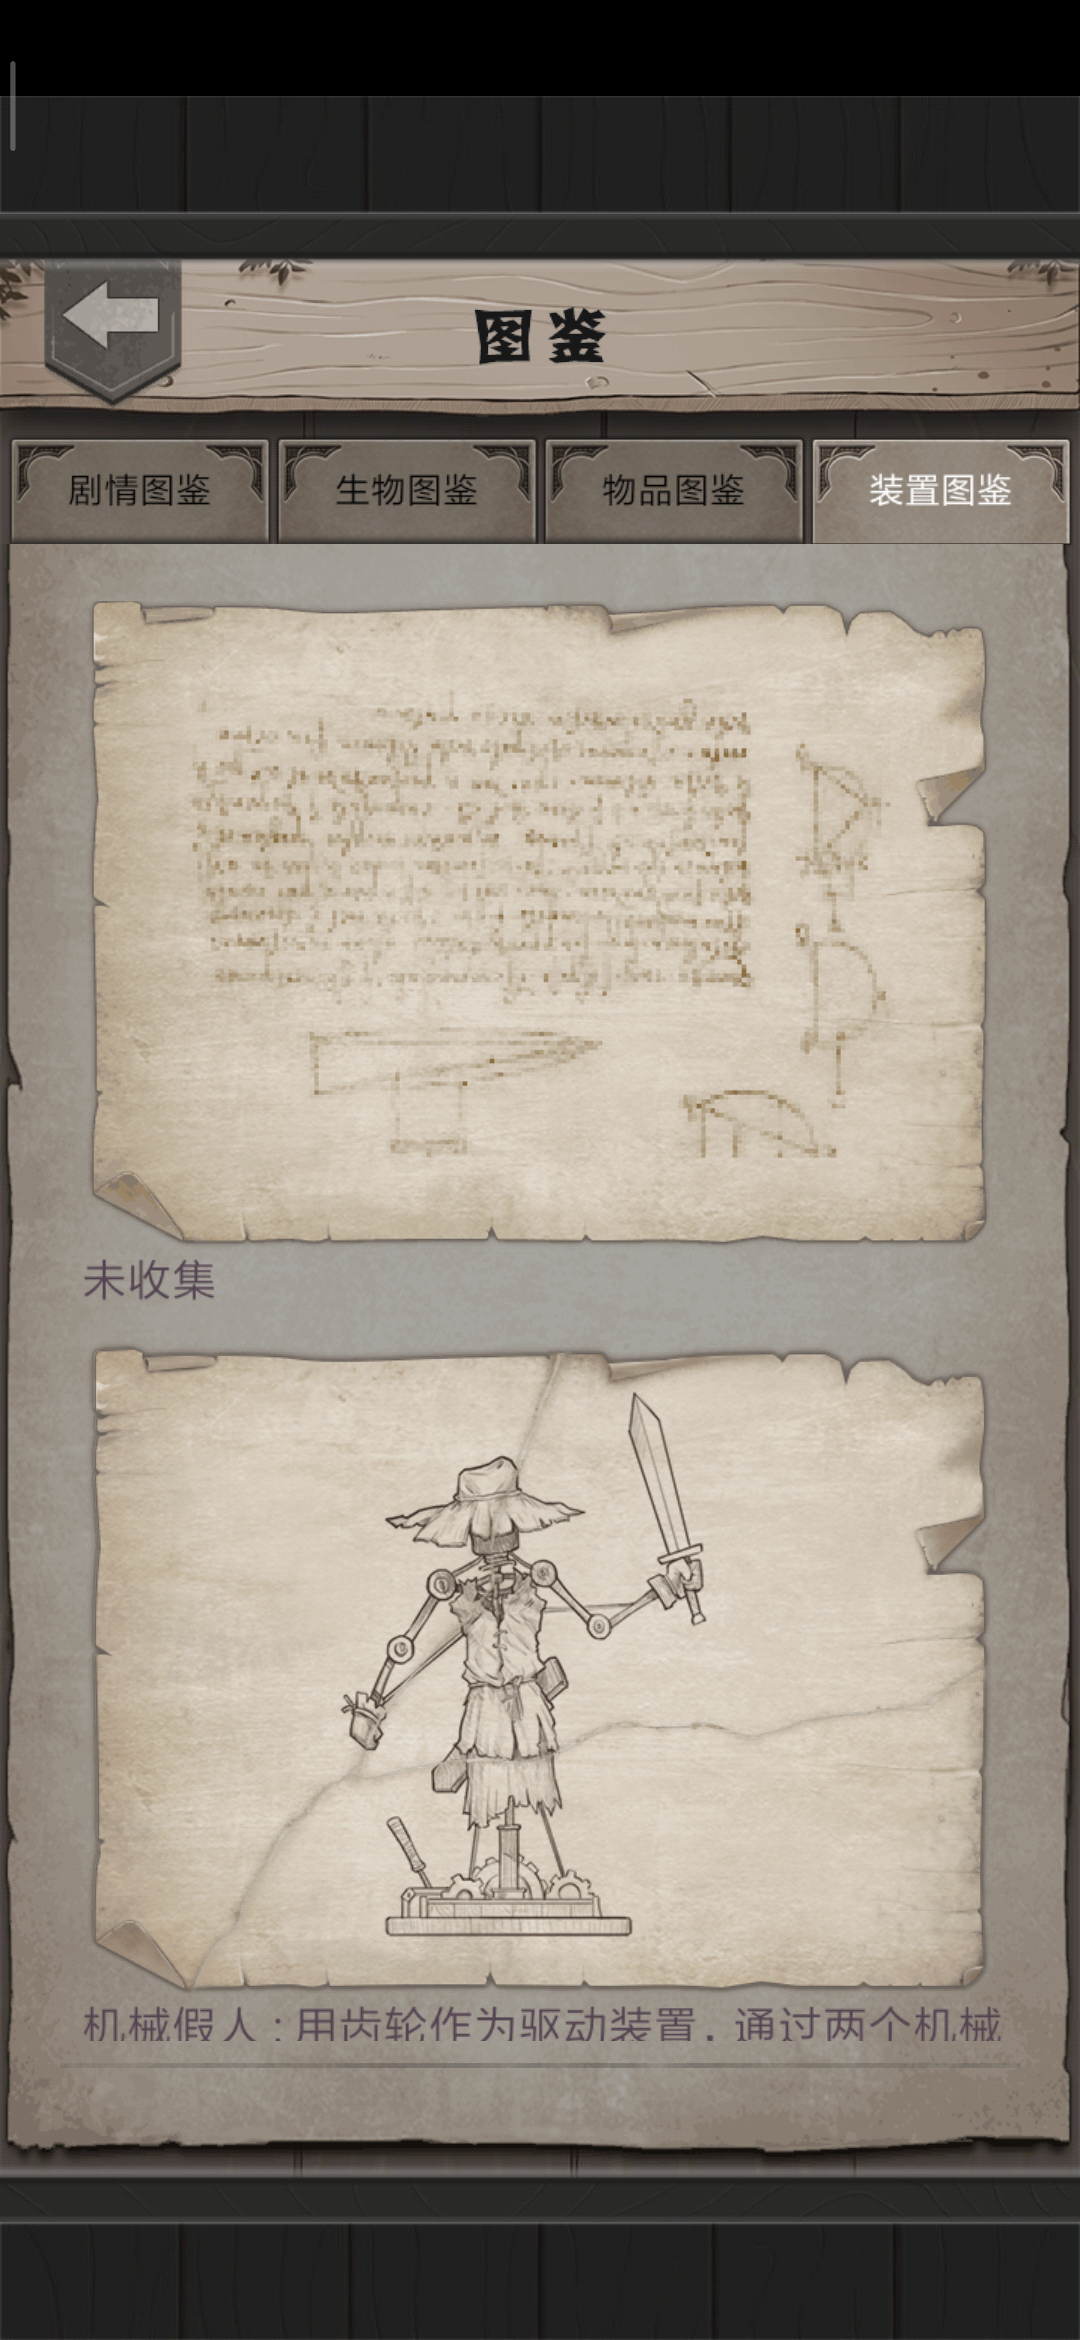 图鉴
剧情图鉴
生物图鉴
物品图鉴
装置图鉴
未收集
机械假人:用齿轮作为驱动装置，通过两个机械